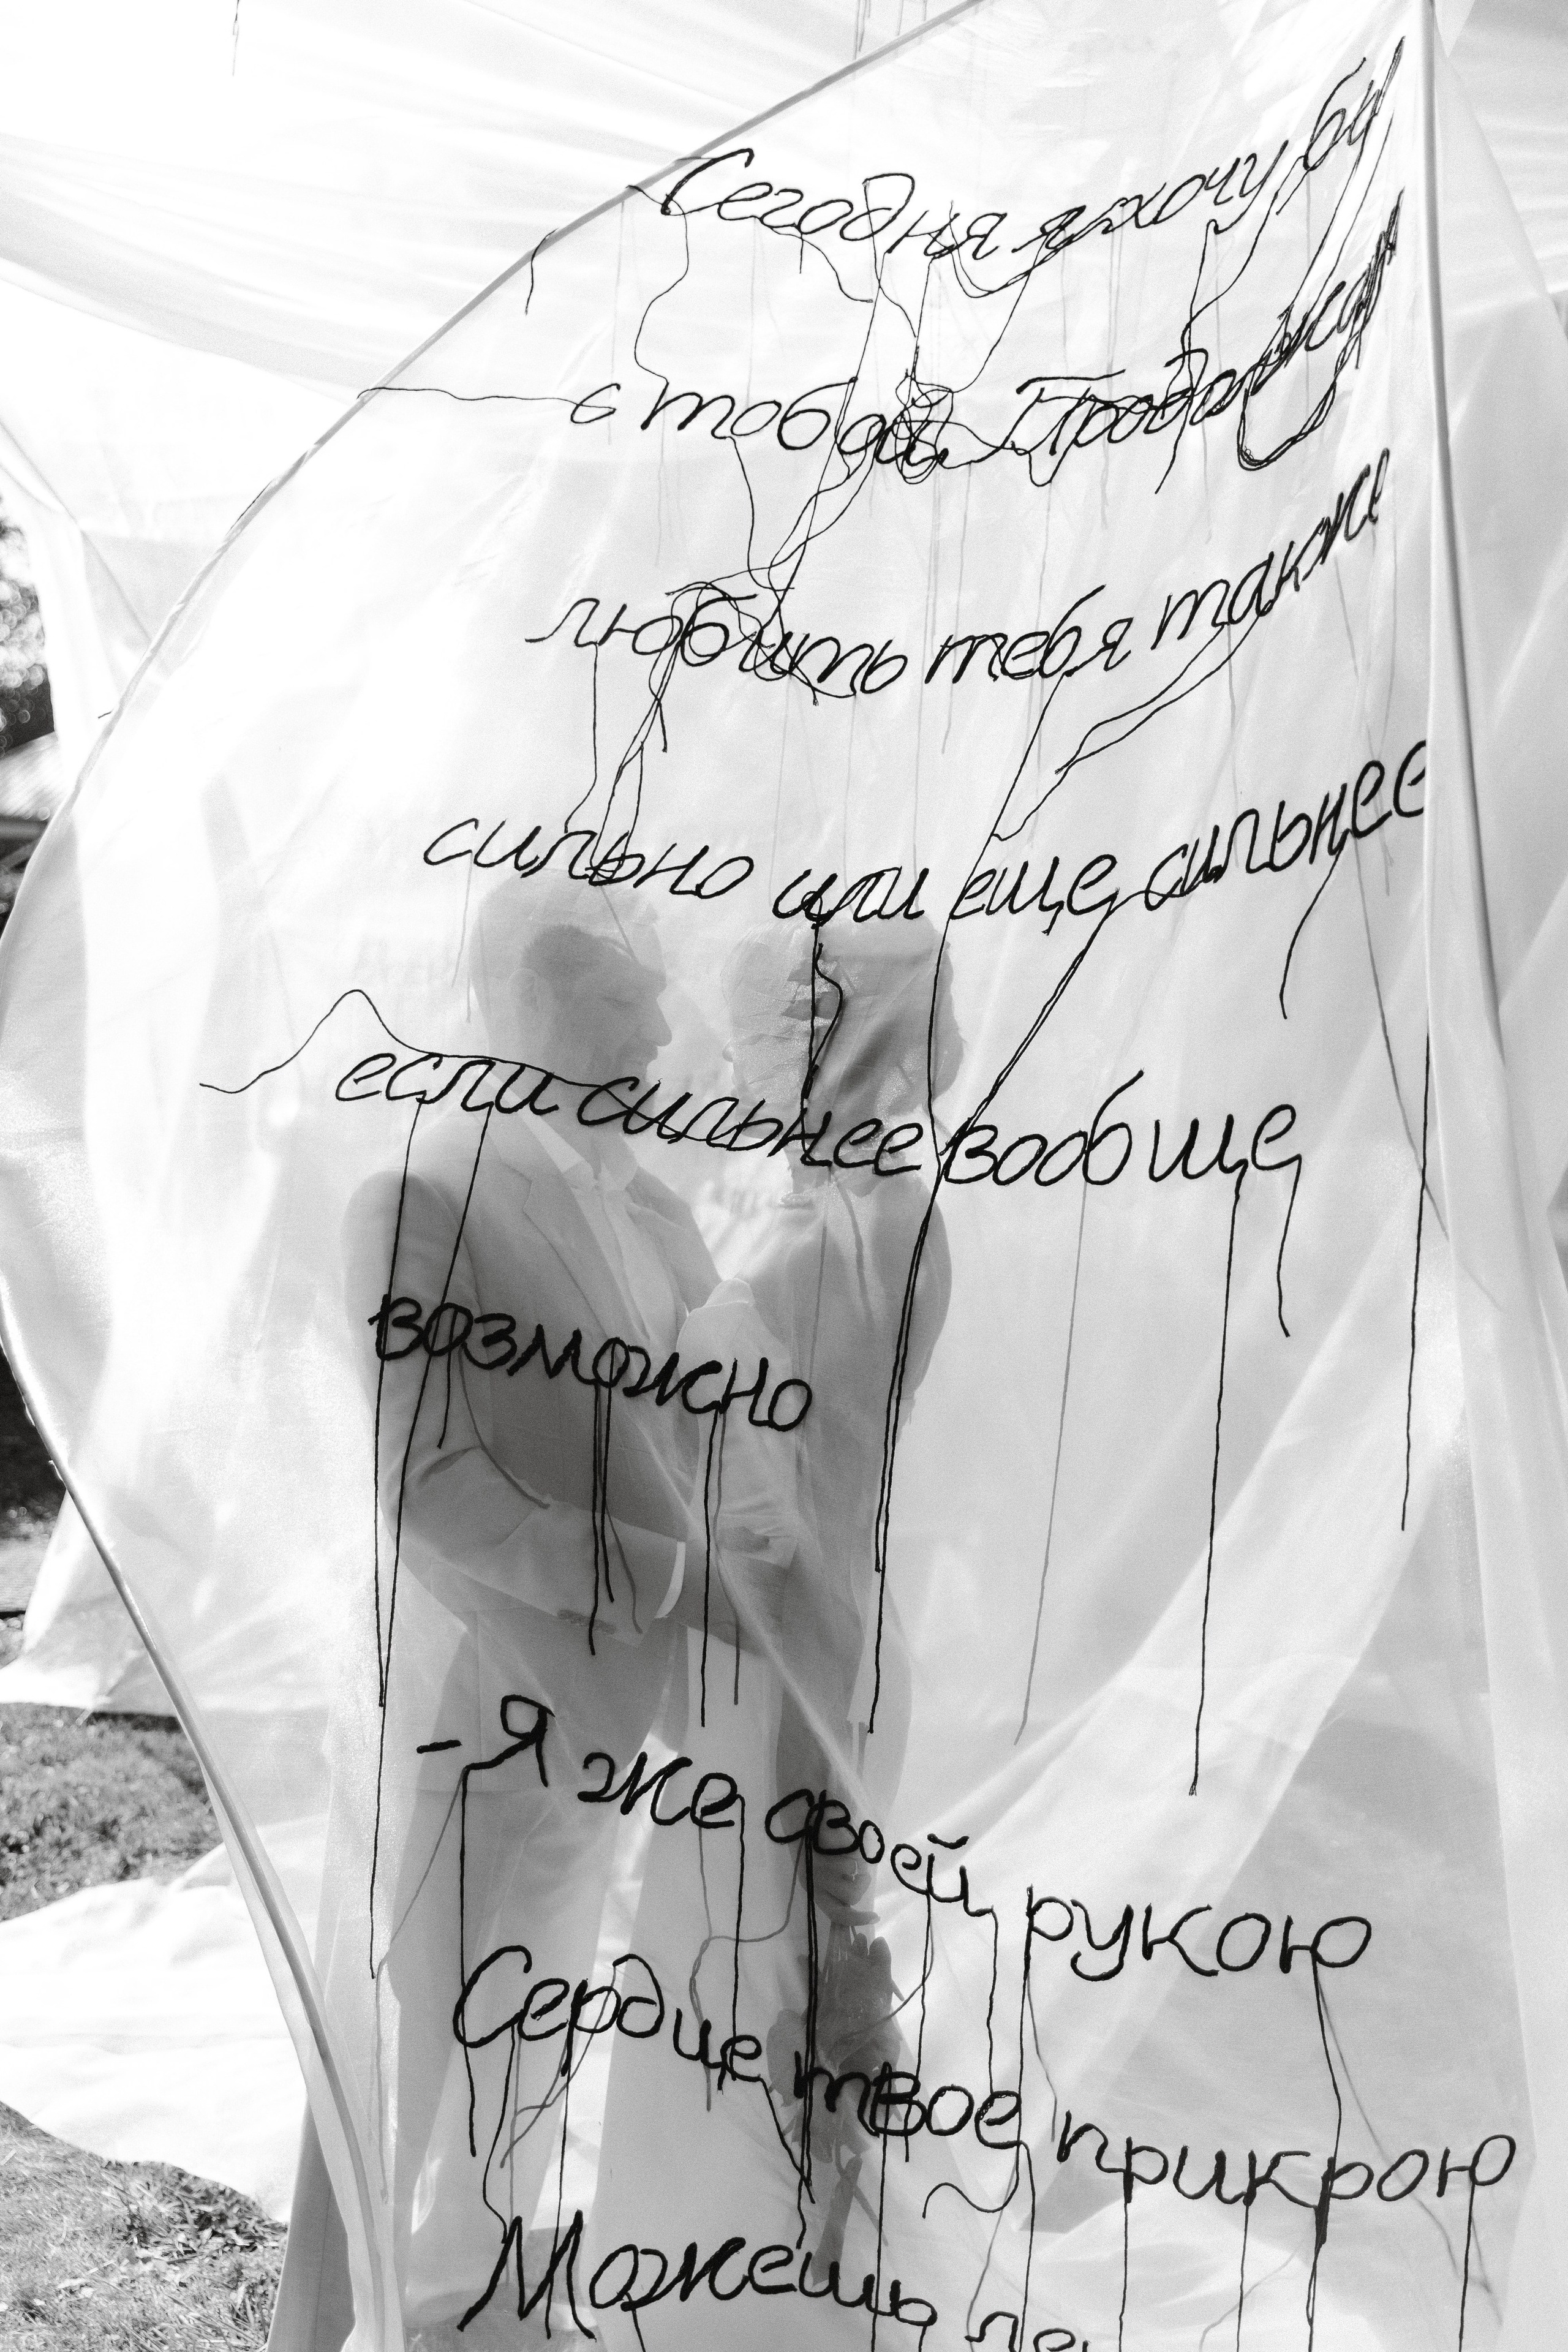 Сегодня я хочу бы
с тобой. Продолжаю
любить тебя также
сильно или еще сильнее
если сильнее вообще
возможно
-Я же своей рукою
Сердце твое прикрою
Можешь ле